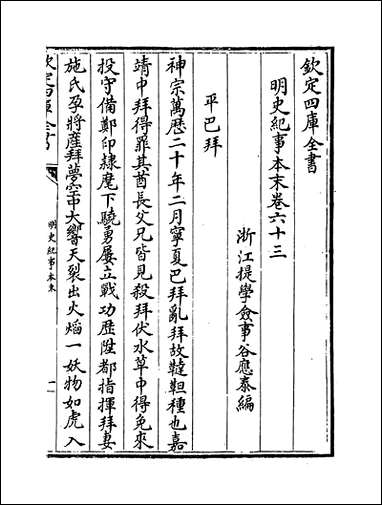 欽定四庫全書
明史紀事本末卷六十三
浙江提學僉事谷應泰編
平巴拜
神宗萬歷二十年二月寧夏巴拜亂拜故韃靼種也嘉
靖中拜得罪其酋長父兄皆見殺拜伏水草中得免來
投守備鄭印隸麾下驍勇屢立戰功歷陞都指揮拜妻
施氏孕將產拜夢空中大響天裂出火熖一妖物如虎入
欽定四庫全書
明史紀事本末
一